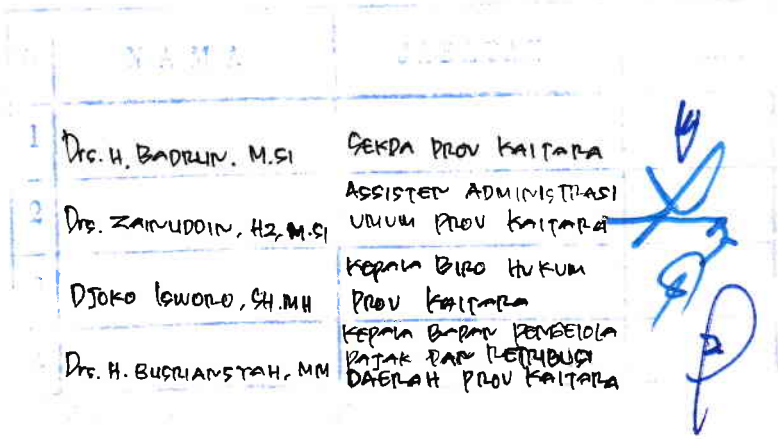 NAMA JABATAN
1 Drs. H. BADRUN. M.SI SEKDA PROV KALTARA
2 Drs. ZAINUDDIN, HZ, M.SI ASSISTEN ADMINISTRASI
UMUM PROV KALTARA
DJOKO ISWORO, SH.MH KEPALA BIRO HUKUM
PROV KALTARA
Drs. H. BUSRIANSYAH, MM KEPALA BADAN PENGELOLA
PAJAK DAN RETRIBUSI
DAERAH PROV KALTARA